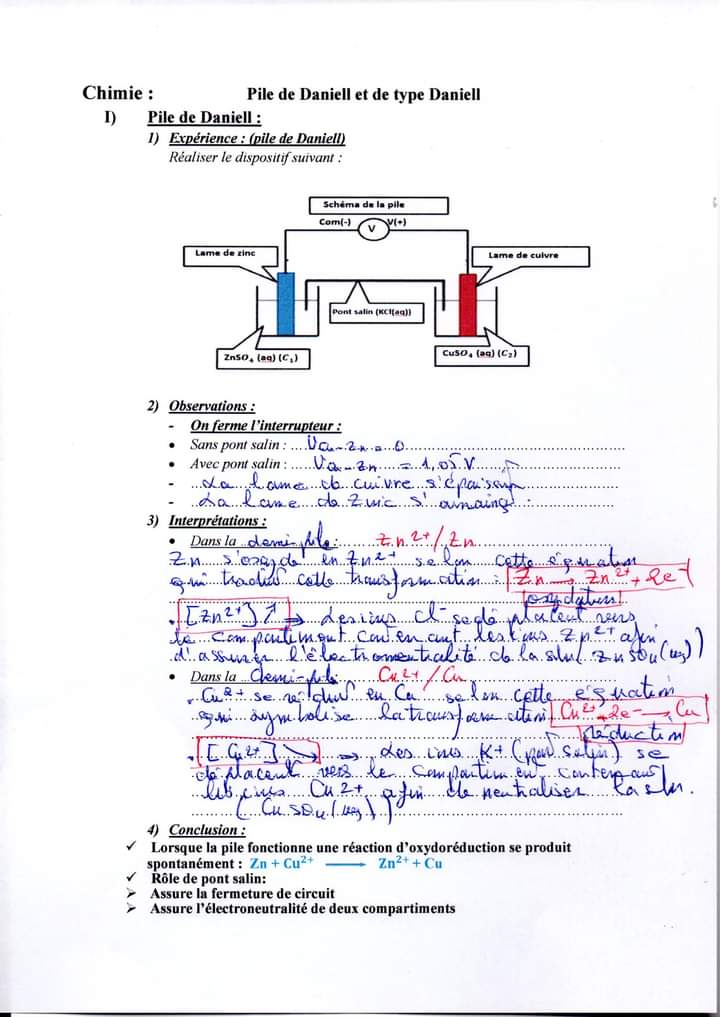 Chimie : Pile de Daniell et de type Daniell
I) Pile de Daniell :
1) Expérience : (pile de Daniell)
Réaliser le dispositif suivant :
Schéma de la pile
Com(-) V V(+)
Lame de zinc
Lame de cuivre
Pont salin (KCl(aq))
ZnSO₄ (aq) (C₁)
CuSO₄ (aq) (C₂)
2) Observations :
- On ferme l'interrupteur :
• Sans pont salin : ...Vcu-zn = 0
• Avec pont salin : ...Vcu-zn = 1,05 V
- La lame de cuivre s'épaissit
- La lame de Zinc s'amincit
3) Interprétations :
• Dans la demi pile : Zn2+/Zn
Zn s'oxyde en Zn2+ selon cette équation
qui traduit cette transformation : Zn → Zn2+ + 2e-
oxydation
. [Zn2+] ↗ ⇒ Les ions Cl- se déplacent vers
le compartiment contenant les ions Zn2+ afin
d'assurer l'électroneutralité de la solu( ZnSO4(aq))
• Dans la demi-pile : Cu2+/Cu
. Cu2+ se réduit en Cu selon cette équation
qui symbolise la transformation Cu2+ + 2e- → Cu
Réduction
. [Cu2+] ↘ ⇒ Les ions K+ (pont salin) se
déplacent vers le compartiment contenant
les ions Cu2+ afin de neutraliser la soln.
( CuSO4(aq))
4) Conclusion :
✓ Lorsque la pile fonctionne une réaction d'oxydoréduction se produit
spontanément : Zn + Cu²⁺ —— Zn²⁺ + Cu
✓ Rôle de pont salin:
➢ Assure la fermeture de circuit
➢ Assure l'électroneutralité de deux compartiments